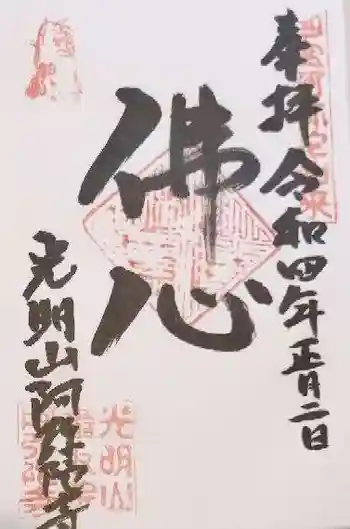 奉拝
令和四年正月二日
佛心
光明山阿弥陀寺
光明山